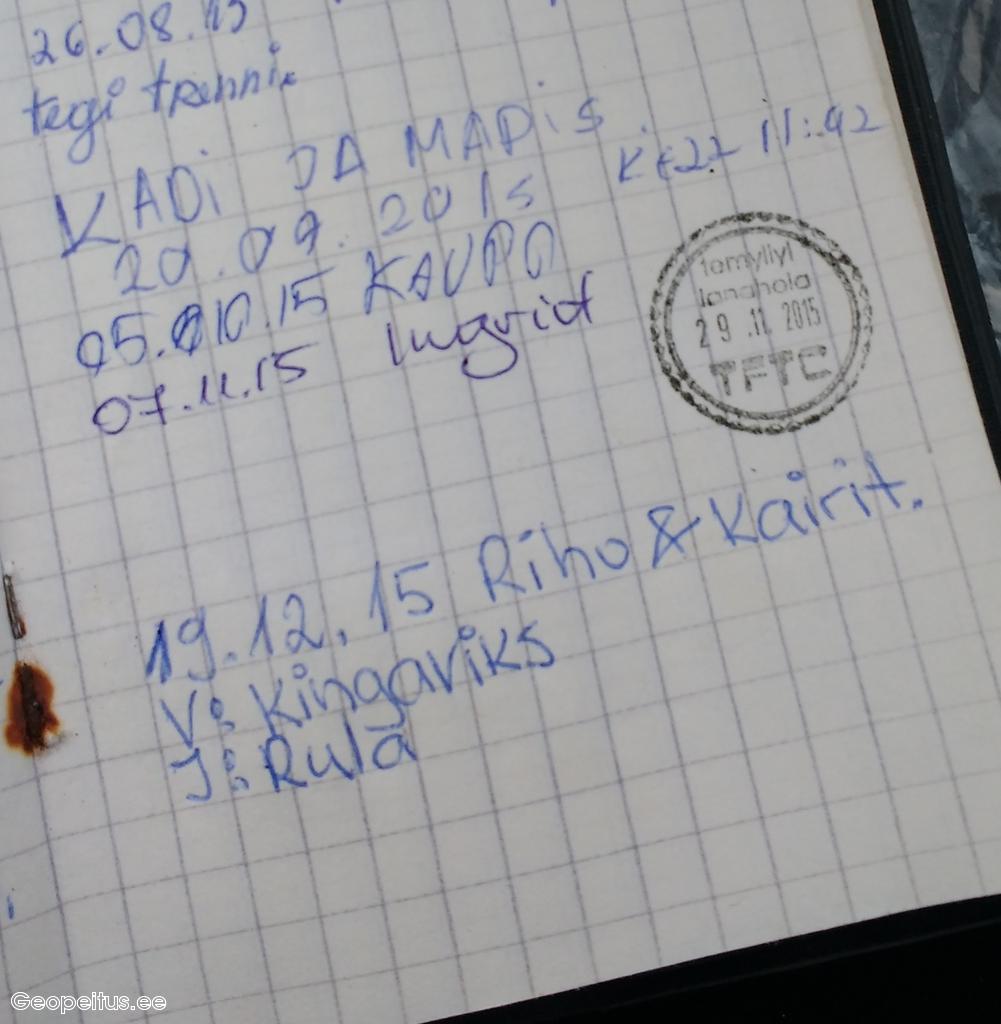 26.08.15
tegi trenni.
KADi JA MADiS
20.09.2015 11:42
05.10.15 KAUPO
07.11.15 Ingrid
29.11.2015
TFTC
19.12.15 Riho & Kairit.
V: Kingaviks
J: Rula
Geopeitus.ee